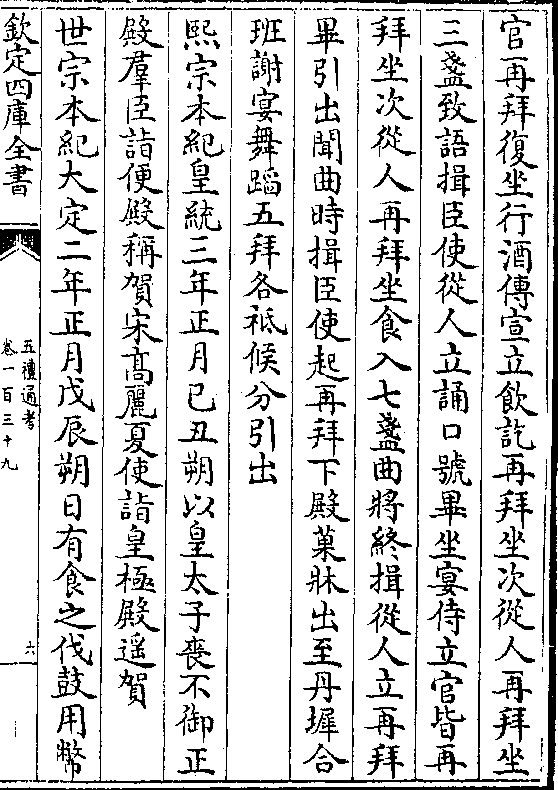 官再拜復坐行酒傳宣立飲訖再拜坐次從人再拜坐
三盞致語揖臣使從人立誦口號畢坐宴侍立官皆再
拜坐次從人再拜坐食入七盞曲將終揖從人立再拜
畢引出聞曲時揖臣使起再拜下殿菓牀出至丹墀合
班謝宴舞蹈五拜各祗候分引出
熙宗本紀皇統三年正月已丑朔以皇太子喪不御正
殿羣臣詣便殿稱賀宋髙麗夏使詣皇極殿遥賀
世宗本紀大定二年正月戊辰朔日有食之伐鼓用幣
欽定四庫全書
五禮通考
卷一百三十九
六